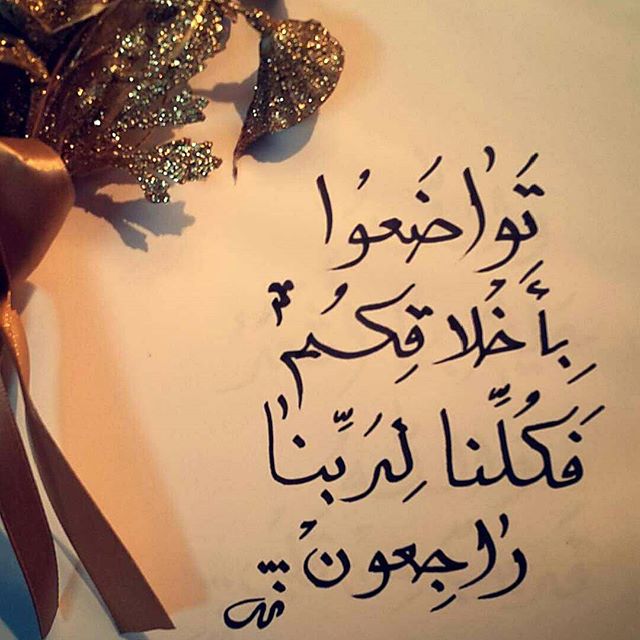 تَوَاضَعُوا
بِأَخْلَاقِكُمْ
فَكُلُّنَا لِرَبِّنَا
رَاجِعُونْ